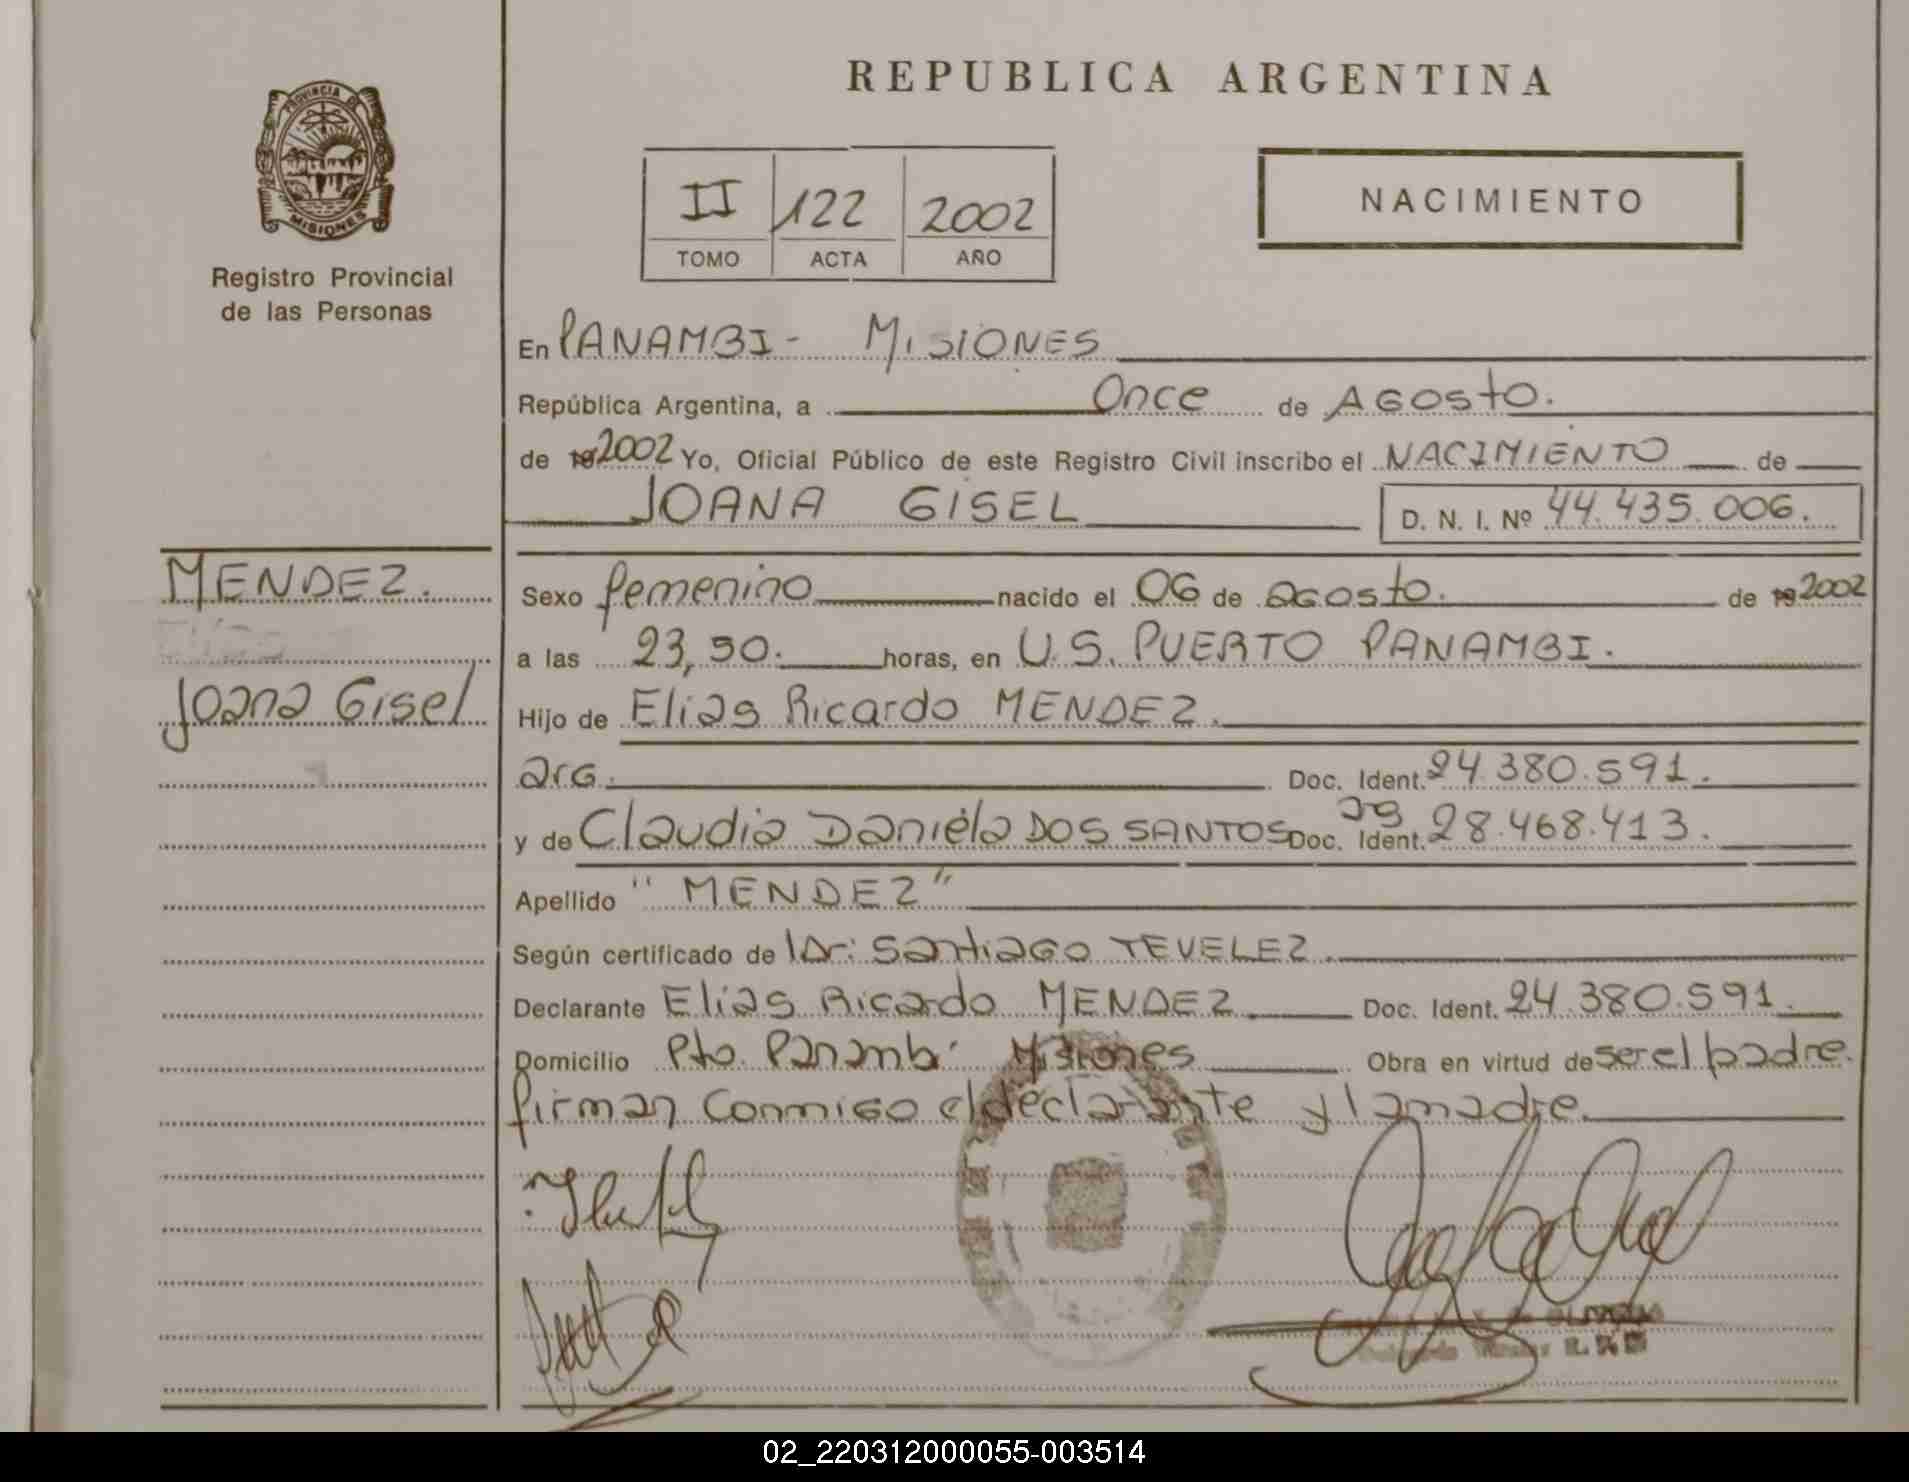 REPUBLICA ARGENTINA
PROVINCIA DE
MISIONES
Registro Provincial
de las Personas
II 122 2002
TOMO ACTA AÑO
NACIMIENTO
En PANAMBI - MISIONES
República Argentina, a Once de AGOSTO.
de 19 2002 Yo, Oficial Público de este Registro Civil inscribo el NACIMIENTO de
JOANA GISEL D. N. I. Nº 44.435.006.
MENDEZ.
Joana Gisel
Sexo femenino nacido el 06 de agosto. de 19 2002
a las 23,30. horas, en U.S. PUERTO PANAMBI.
Hijo de Elias Ricardo MENDEZ.
arg. Doc. Ident. 24.380.591.
y de Claudia Daniela DOS SANTOS arg Doc. Ident. 28.468.413.
Apellido " MENDEZ "
Según certificado de Dr: Santiago TEVELEZ.
Declarante Elias Ricardo MENDEZ. Doc. Ident. 24.380.591.
Domicilio Pto. Panambi Misiones Obra en virtud de ser el padre.
firman conmigo el declarante y la madre.
02_220312000055-003514